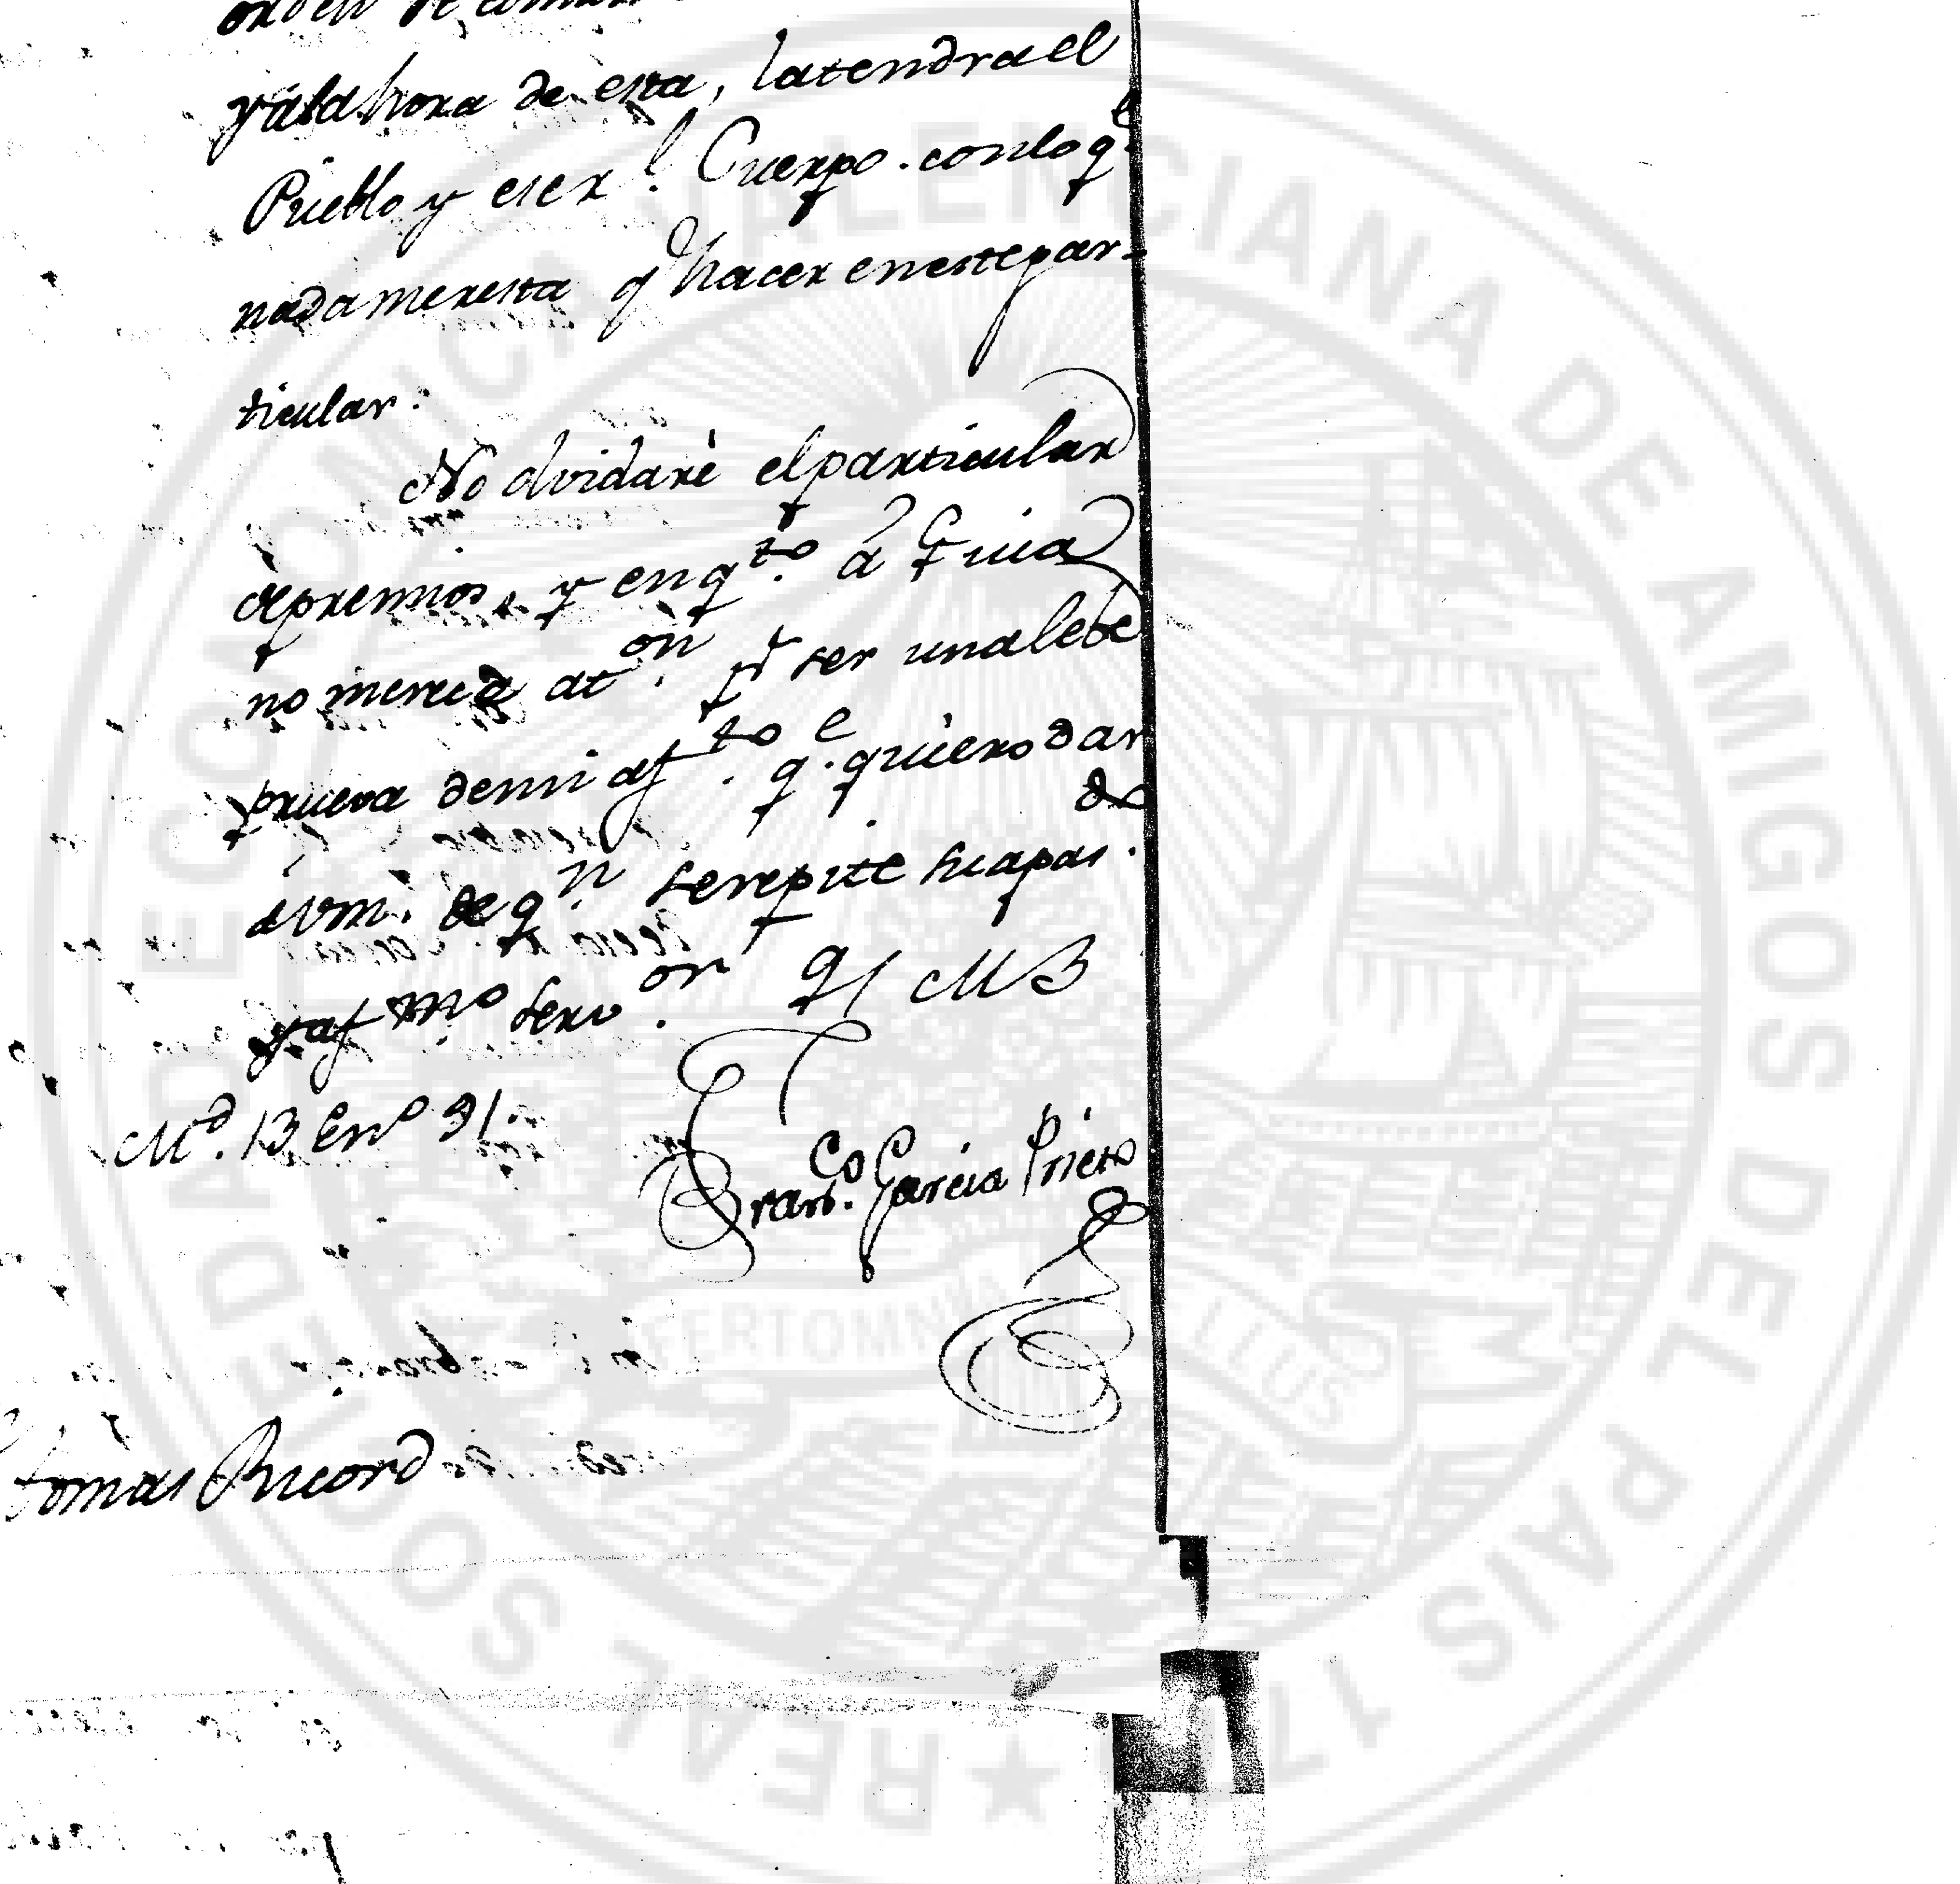 orden de
y á la hora de esta, la tendra el
Pueblo y ese Rl. Cuerpo. con lo qe.
nada me resta qe hacer en este par-
ticular:
No olvidarè el particular
de premios, y en qto. à Guia
no merece aton. pr ser una lebe
prueva de mi afto. qe. quiero dar
de
à Vm. de qn. se repite su apas.
y afmo Servor. Q S M B
Md. 13 Eno 91.
Franco. Garcia Prieto
Tomas Ricord
REAL SOCIEDAD ECONOMICA VALENCIANA DE AMIGOS DEL PAIS 17